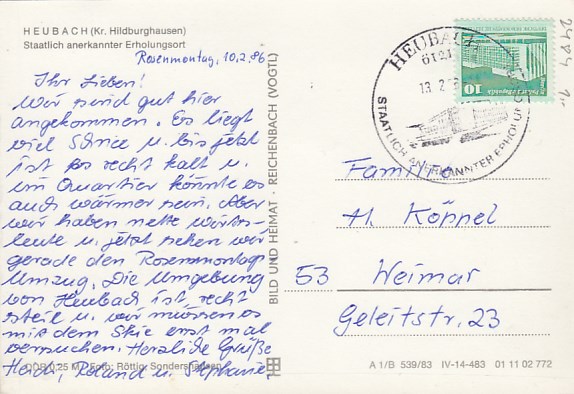 HEUBACH (Kr. Hildburghausen)
Staatlich anerkannter Erholungsort
Rosenmontag, 10.2.86
Ihr Lieben!
Wir sind gut hier
angekommen. Es liegt
viel Schnee u. bis jetzt
ist es recht kalt u.
im Quartier könnte es
auch wärmer sein. Aber
wir haben nette Wirts-
leute u. jetzt sehen wir
gerade den Rosenmontags
Umzug. Die Umgebung
von Heubach ist recht
steil u. wir müssen es
mit dem Skie erst mal
versuchen. Herzliche Grüße
Heidi, Roland u. Stephanie,
0,25 M Foto: Röttig, Sondershausen
BILD UND HEIMAT · REICHENBACH (VOGTL)
HEUBACH
6121
13 2
STAATLICH ANERKANNTER ERHOLUNGSORT
10
Familie
H. Köppel
53 Weimar
Geleitstr. 23
A 1/B 539/83 IV-14-483 01 11 02 772